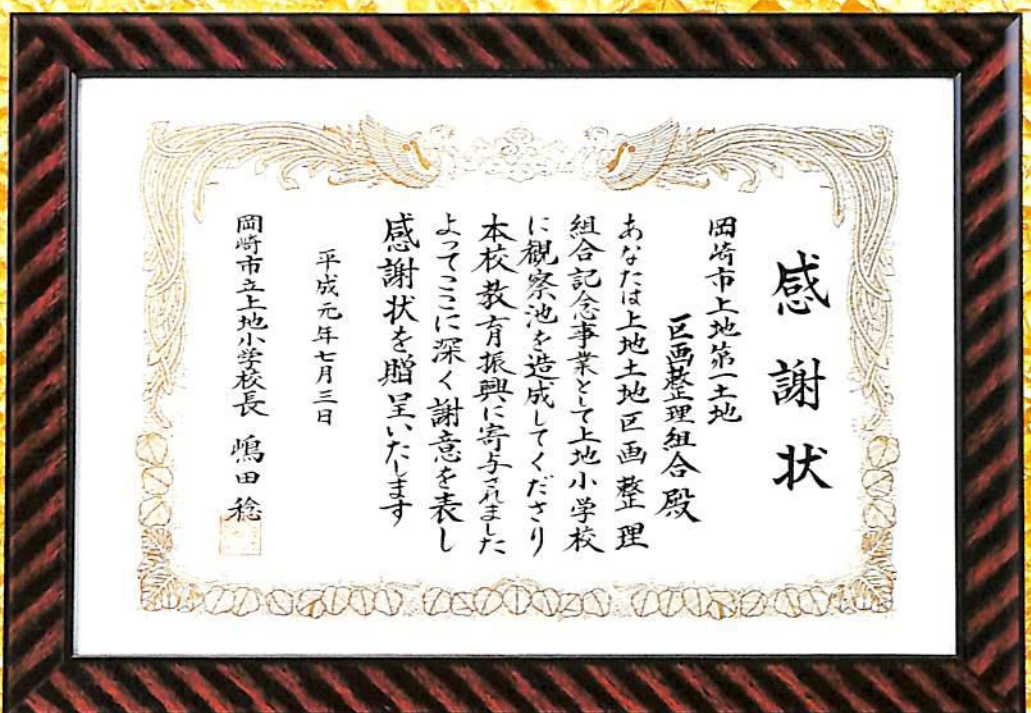 感謝状
岡崎市上地第一土地
区画整理組合殿
あなたは上地土地区画整理
組合記念事業として上地小学校
に観察池を造成してくださり
本校教育振興に寄与されました
よってここに深く謝意を表し
感謝状を贈呈いたします
平成元年七月三日
岡崎市立上地小学校長 嶋田稔